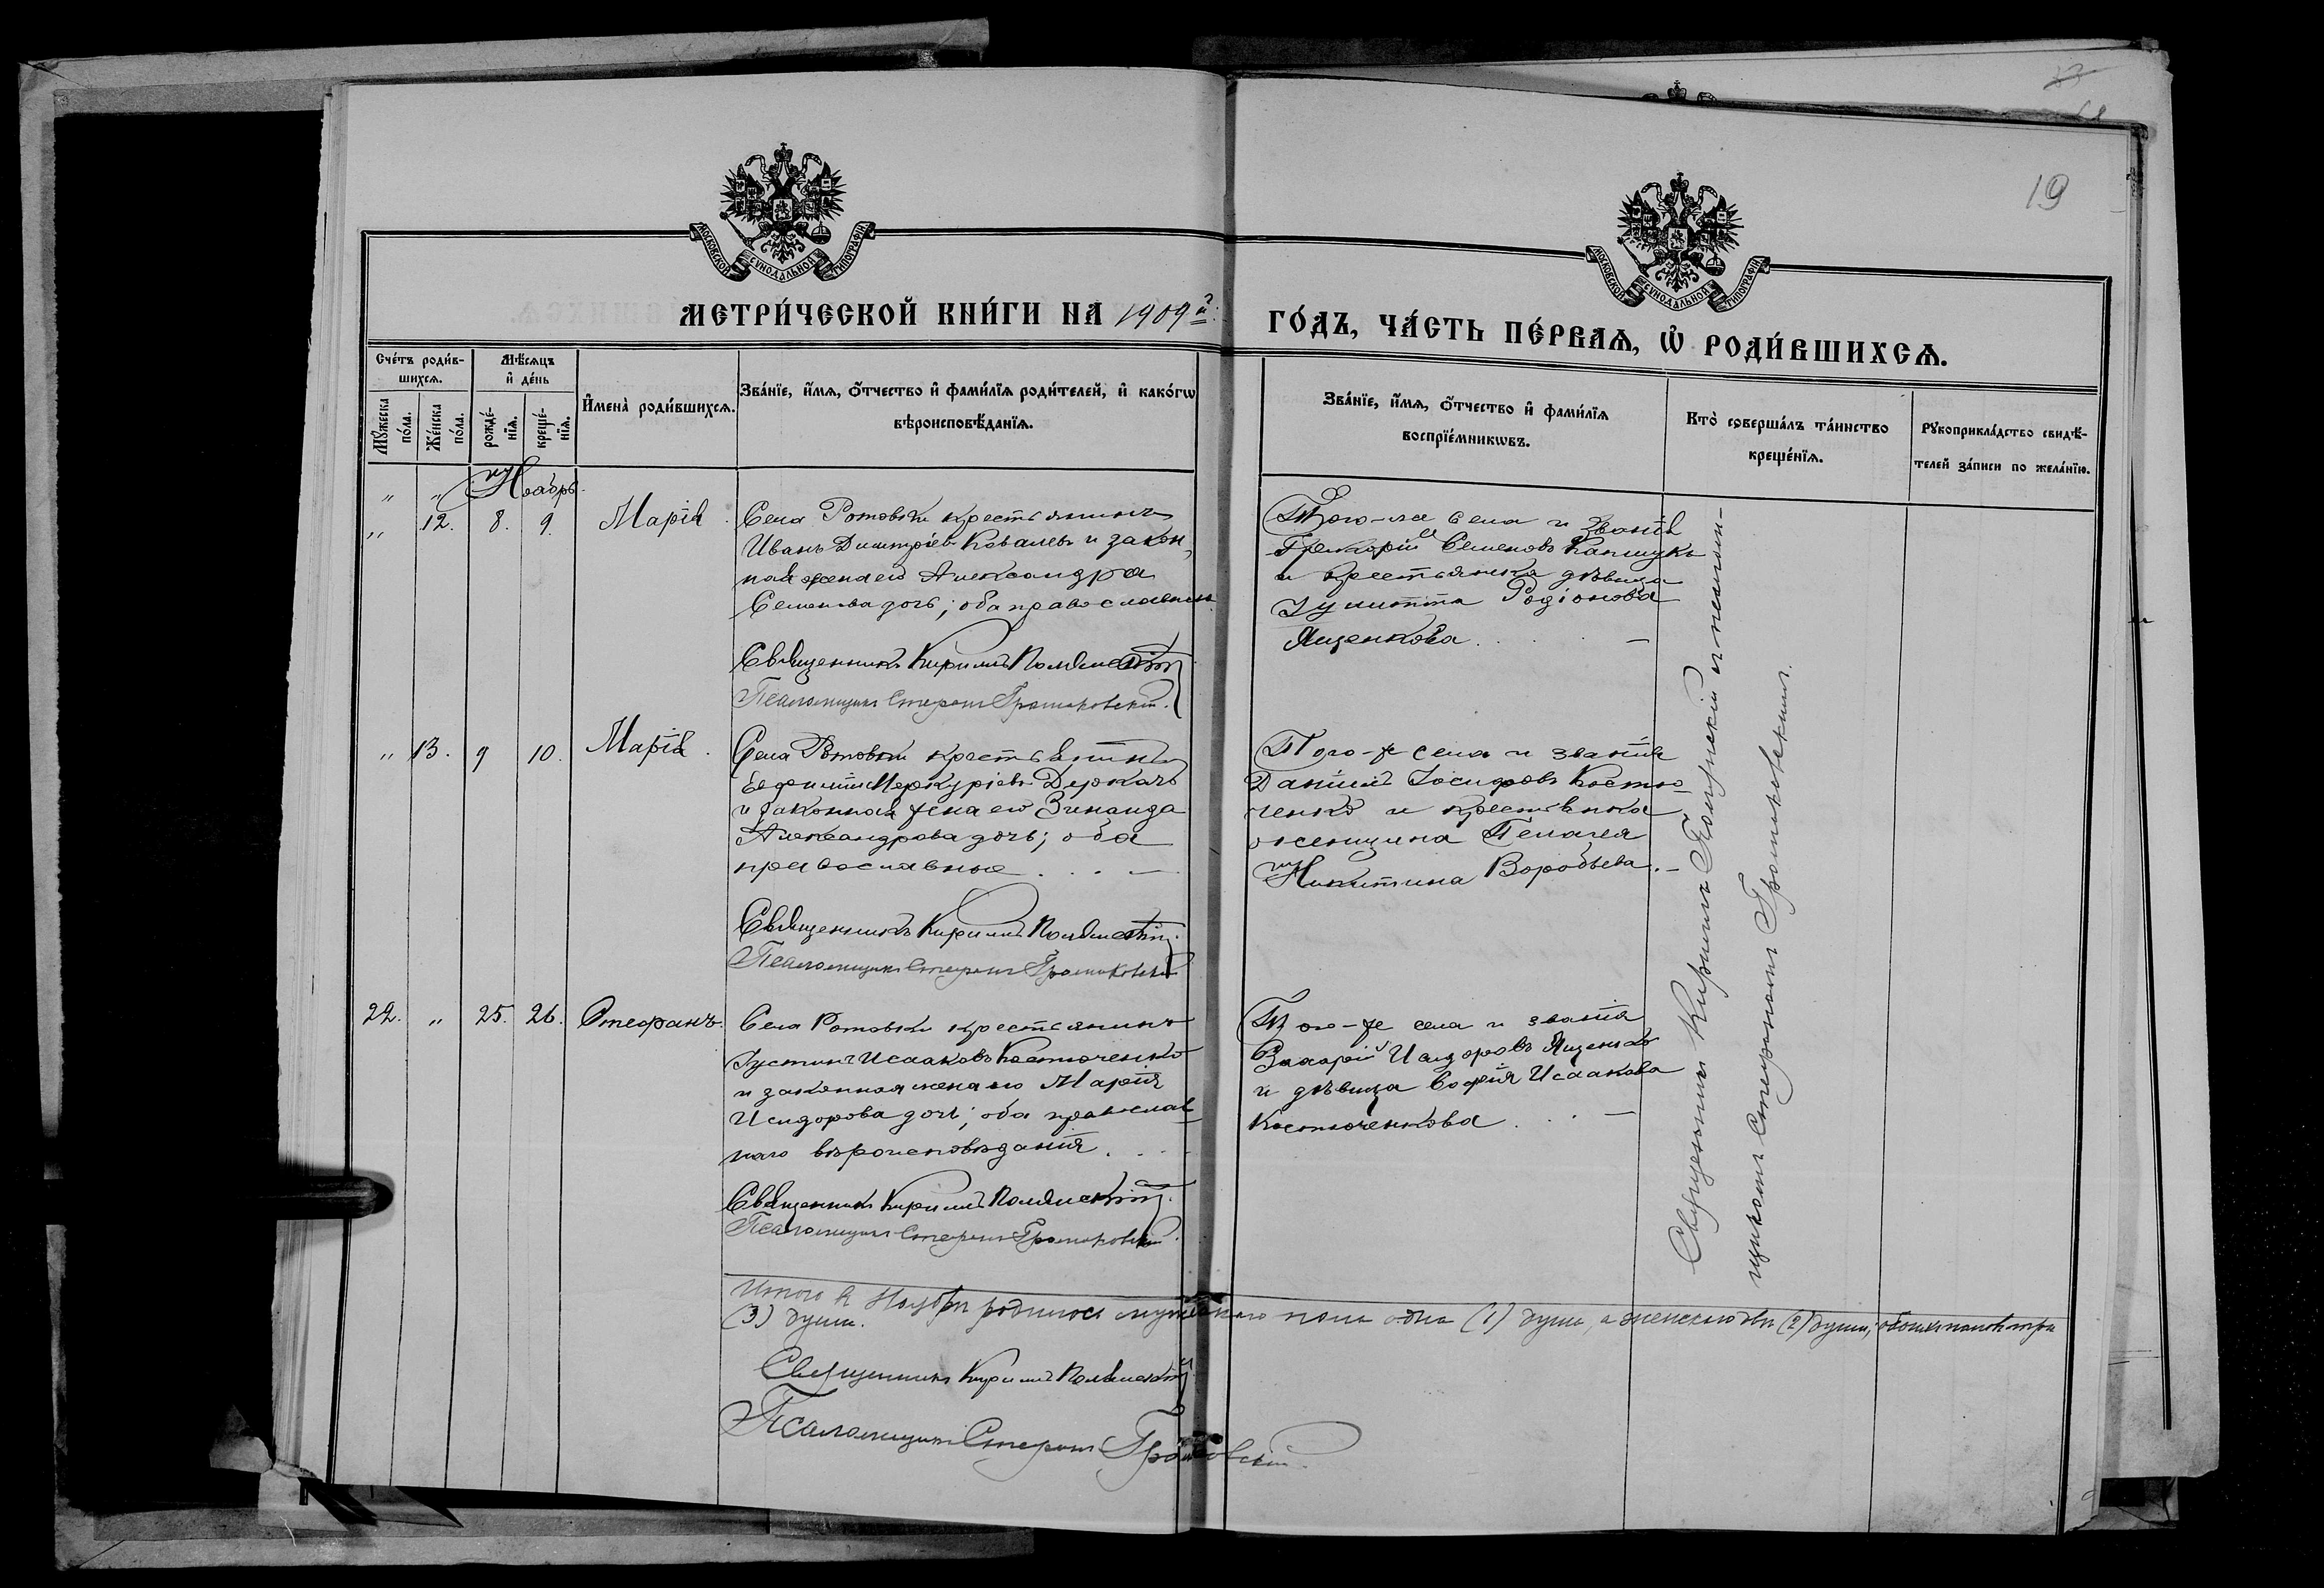 19
МОСКОВСКОЙ СУНОДАЛЬНОЙ ТИПОГРАФІИ
МОСКОВСКОЙ СУНОДАЛЬНОЙ ТИПОГРАФІИ
МЕТРИ́ЧЕСКОЙ КНИ́ГИ НА 1909й
ГО́ДЪ, ЧА́СТЬ ПЕ́РВАЯ, Ѡ РОДИ́ВШИХСЯ.
Сче́тъ роди́в-
шихся.
Мѣ́сяцъ
и де́нь
Мꙋ́жеска
по́ла.
Же́нска
по́ла.
рожде́-
нїя.
креще́-
нїя.
Имена̀ роди́вшихся.
Зва́нїе, и́мя, о́тчество и фами́лїя роди́телей, и како́гѡ
вѣроисповѣ́данїя.
Зва́нїе, и́мя, о́тчество и фами́лїя
воспрїе́мникѡвъ.
Кто̀ соверша́лъ та́инство
креще́нїя.
Рꙋкоприкла́дство свидѣ́-
телей за́писи по жела́нїю.
" " Ноябрь.
" 12. 8. 9. Марія
Села Ротовки крестьянинъ
Иванъ Димитріевъ Ковалевъ и закон-
ная жена его Александра
Семенова дочь; оба православные
Священникъ Кириллъ
Псаломщикъ Стефанъ Громаковскій.
Того-же села и званія
Григорій Семеновъ Капшукъ
и крестьянка дѣвица
Іулитта Родіонова
Яценкова . . . —
" 13. 9 10. Марія.
Села Ротовки крестьянинъ
Евфимій Меркуріевъ Деркачъ
и законная жена его Зинаида
Александрова дочь; оба
православные . . . —
Священникъ Кириллъ
Псаломщикъ Стефанъ Громаковскій
Того-же села и званія
Даніилъ Іосифовъ Костю-
ченко и крестьянка
женщина Пелагея
Никитина Воробьева. —
22. " 25. 26. Стефанъ.
Села Ротовки крестьянинъ
Іустинъ Исааковъ Костюченко
и законная жена его Марія
Исидорова дочь; оба православ-
наго вѣроисповѣданія . . .
Священникъ Кириллъ
Псаломщикъ Стефанъ Громаковскій.
Того-же села и званія
Захарій Исидоровъ Яценко
и дѣвица Софія Исаакова
Костюченкова . . —
Священникъ Кириллъ и псалом-
щикомъ Стефаномъ Громаковскимъ.
Итого въ Ноябрѣ родилось мужескаго пола одна (1) душа, а женскаго двѣ (2) души, обоихъ половъ три
(3) души.
Священникъ Кириллъ
Псаломщикъ Стефанъ Громаковскій.